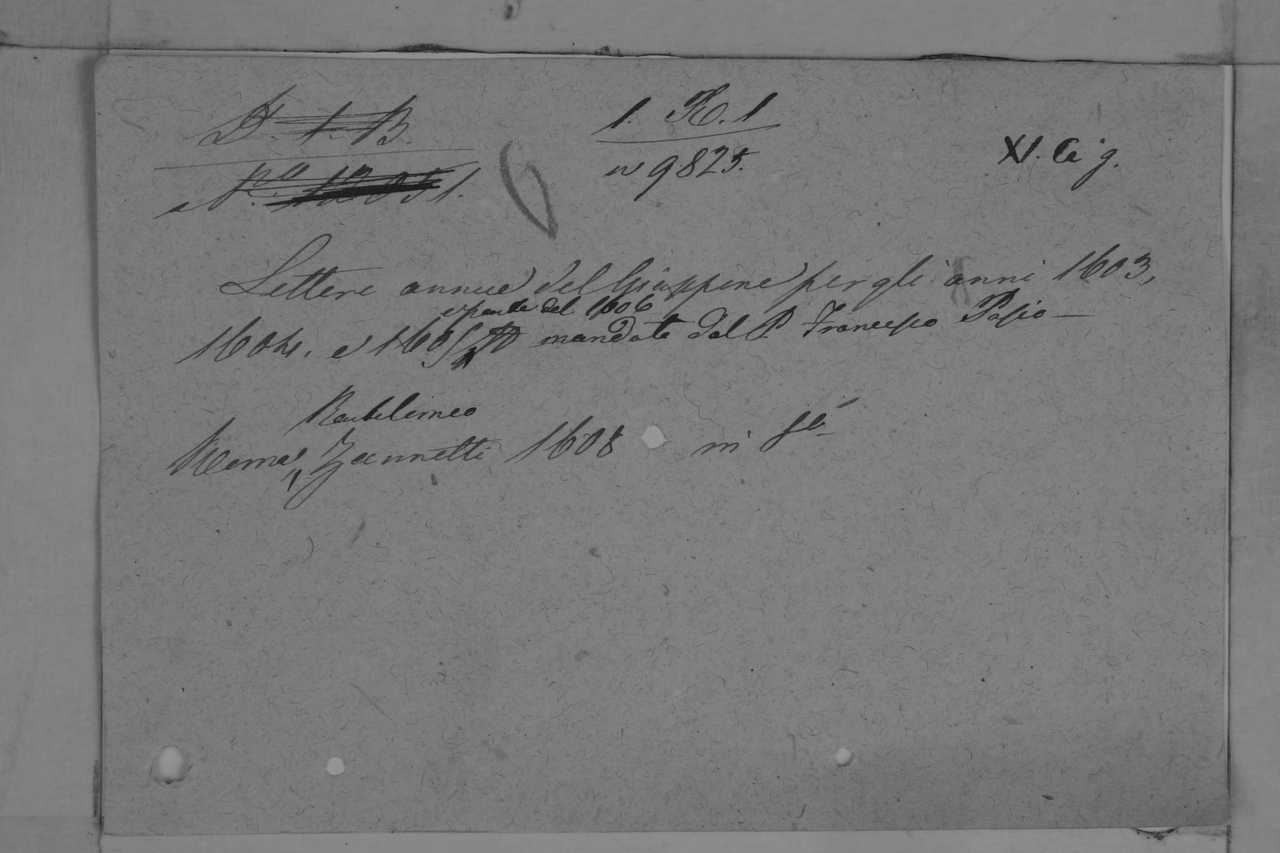 D. 1. B.
N.º 12051.
1. K. 1
n 9825.
XV. Ce j.
Lettere annue del Giappone per gli anni 1603,
e parte del 1606
1604. e 1605 mandate dal P. Francesco Pasio —
Bartolomeo
Roma, Zannetti 1608 in 8º